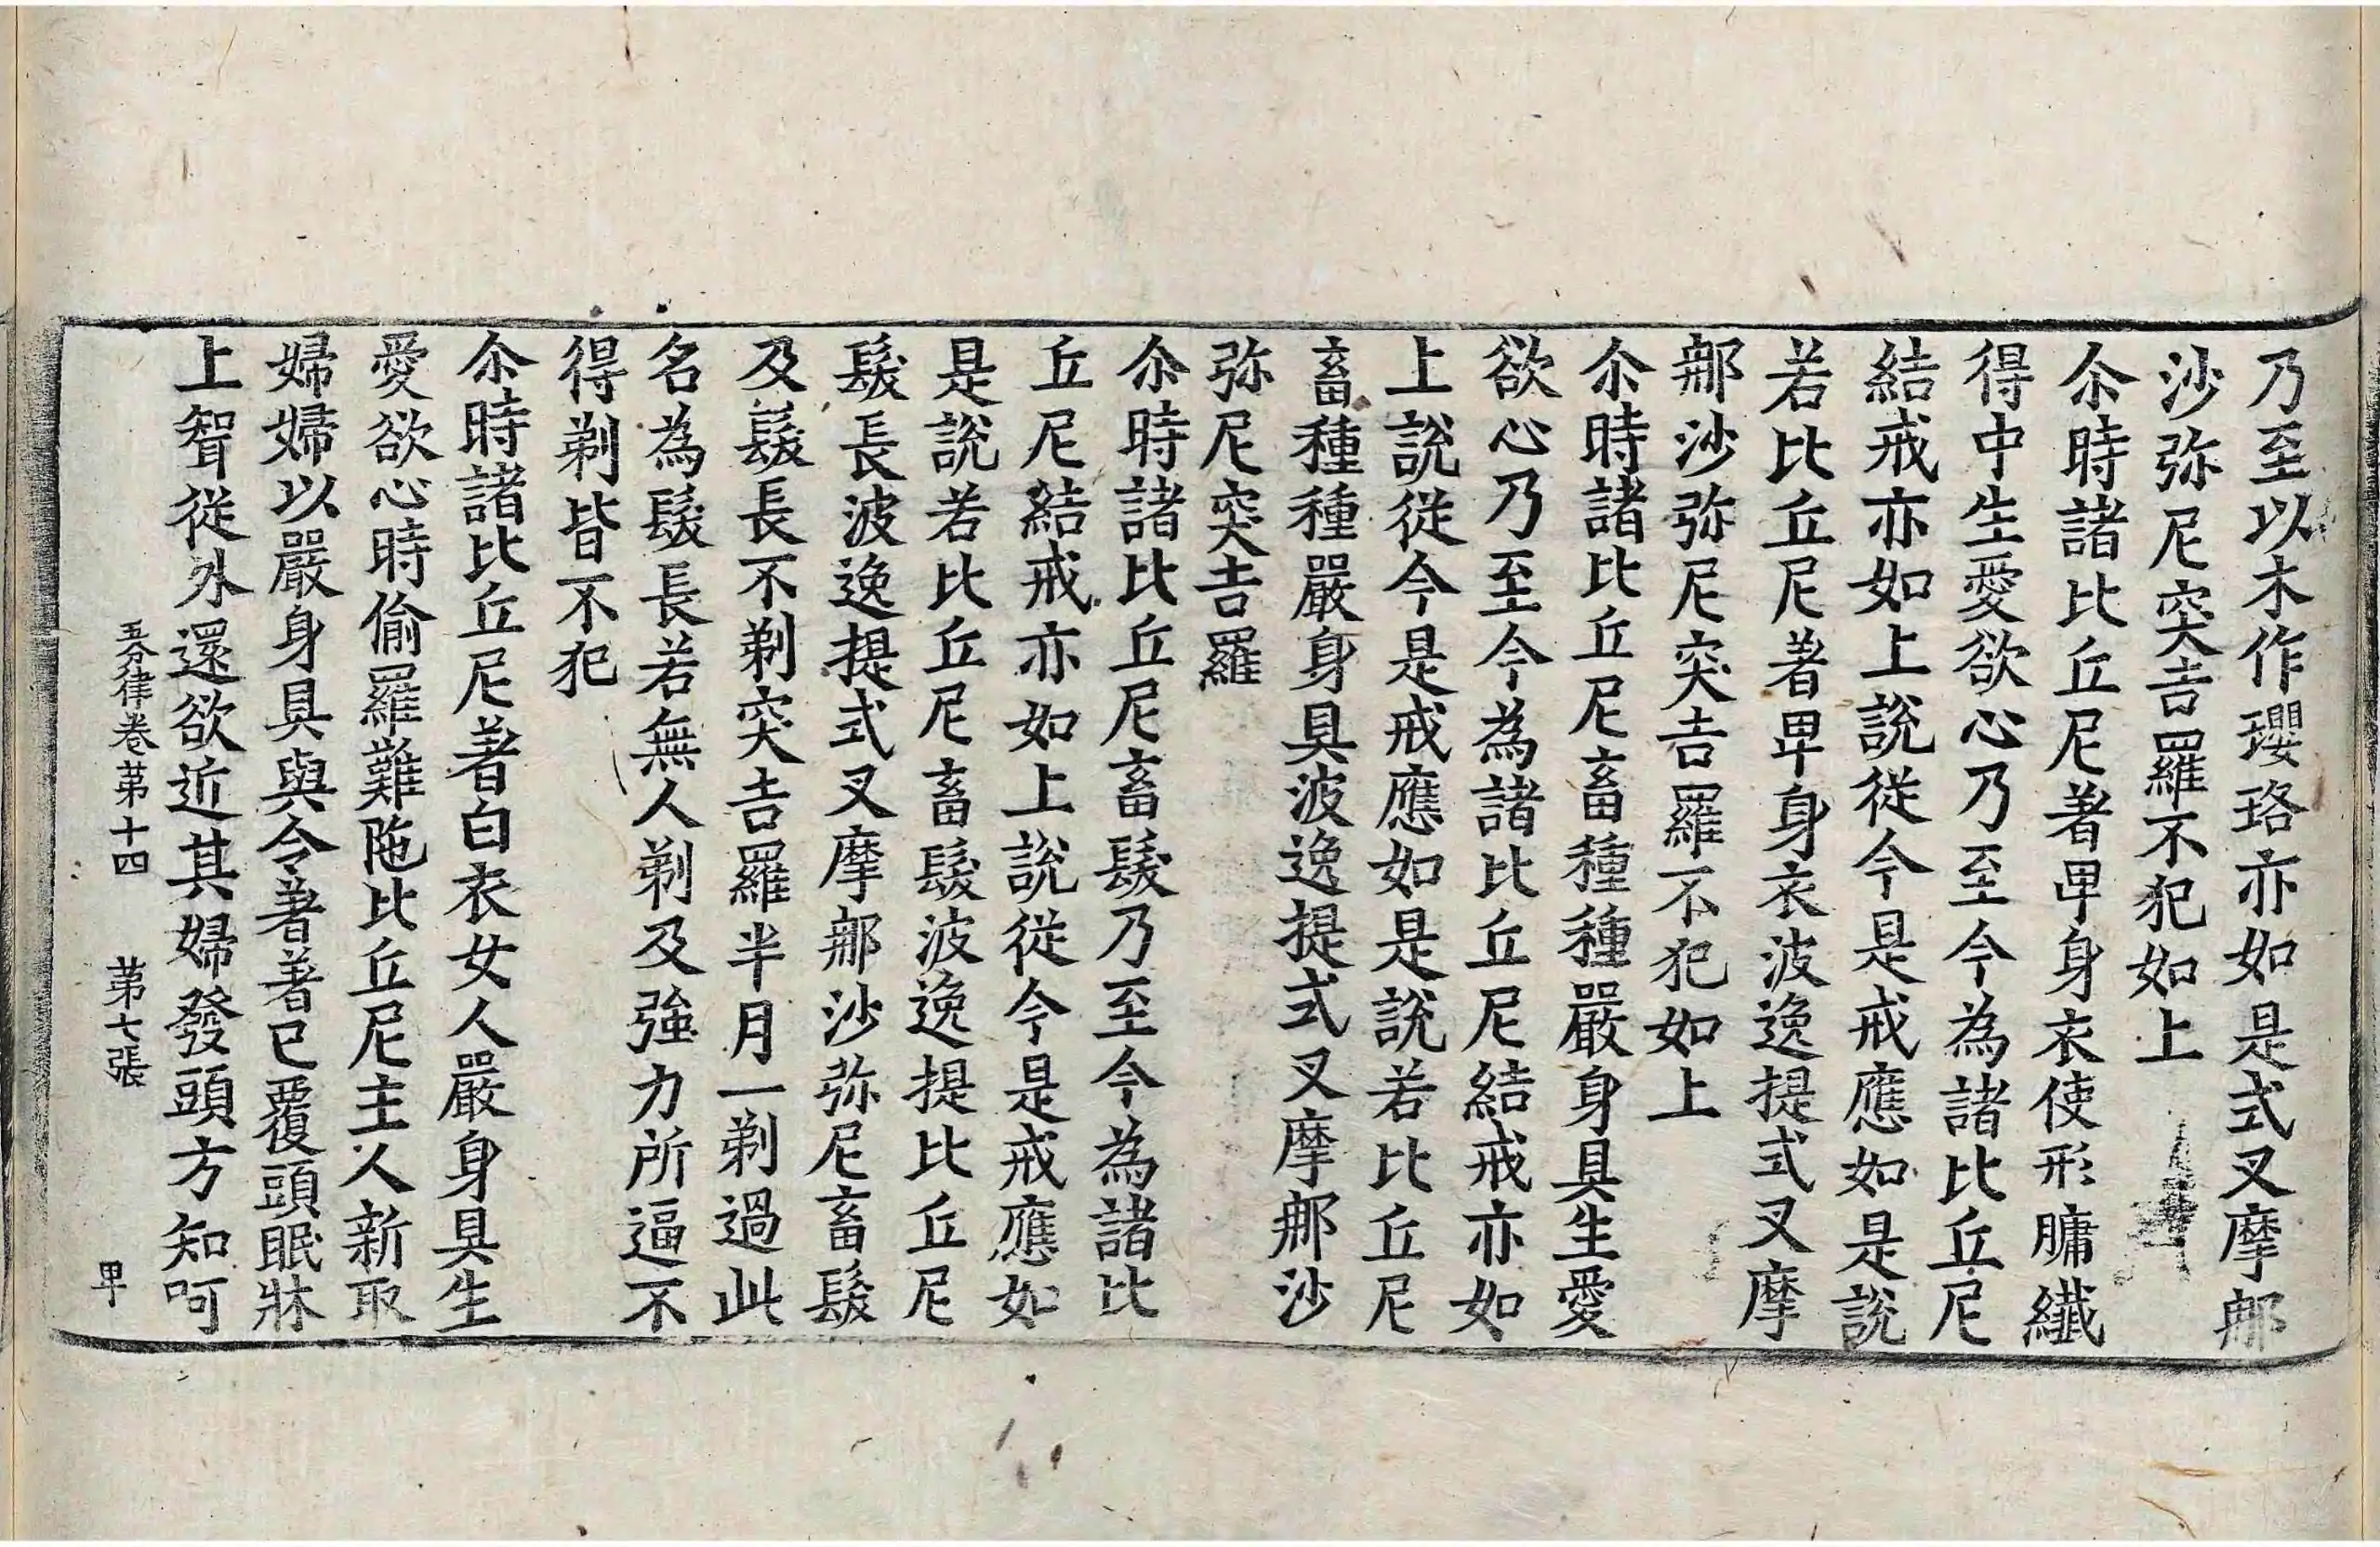 乃至以木作瓔珞亦如是式叉摩那
沙弥尼突吉羅不犯如上
尒時諸比丘尼著甲身衣使形𦟛纖
得中生愛欲心乃至今為諸比丘尼
結戒亦如上說從今是戒應如是說
若比丘尼著甲身衣波逸提式叉摩
那沙弥尼突吉羅不犯如上
尒時諸比丘尼畜種種嚴身具生愛
欲心乃至今為諸比丘尼結戒亦如
上說從今是戒應如是說若比丘尼
畜種種嚴身具波逸提式叉摩那沙
弥尼突吉羅
尒時諸比丘尼畜髮乃至今為諸比
丘尼結戒亦如上說從今是戒應如
是說若比丘尼畜髮波逸提比丘尼
髮長波逸提式叉摩那沙弥尼畜髮
及髮長不剃突吉羅半月一剃過此
名為髮長若無人剃及強力所逼不
得剃皆不犯
尒時諸比丘尼著白衣女人嚴身具生
愛欲心時偷羅難陁比丘尼主人新取
婦婦以嚴身具與令著著已覆頭眠牀
上聟從外還欲近其婦發頭方知呵
五分律卷第十四 第七張 甲